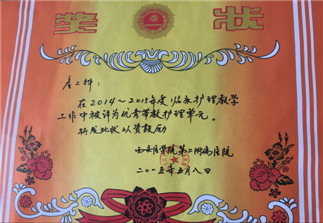 奖状
产二科：
在2014～2015年度临床护理教学
工作中被评为优秀带教护理单元。
特发此状以资鼓励
西安医学院第二附属医院
二〇一五年五月八日